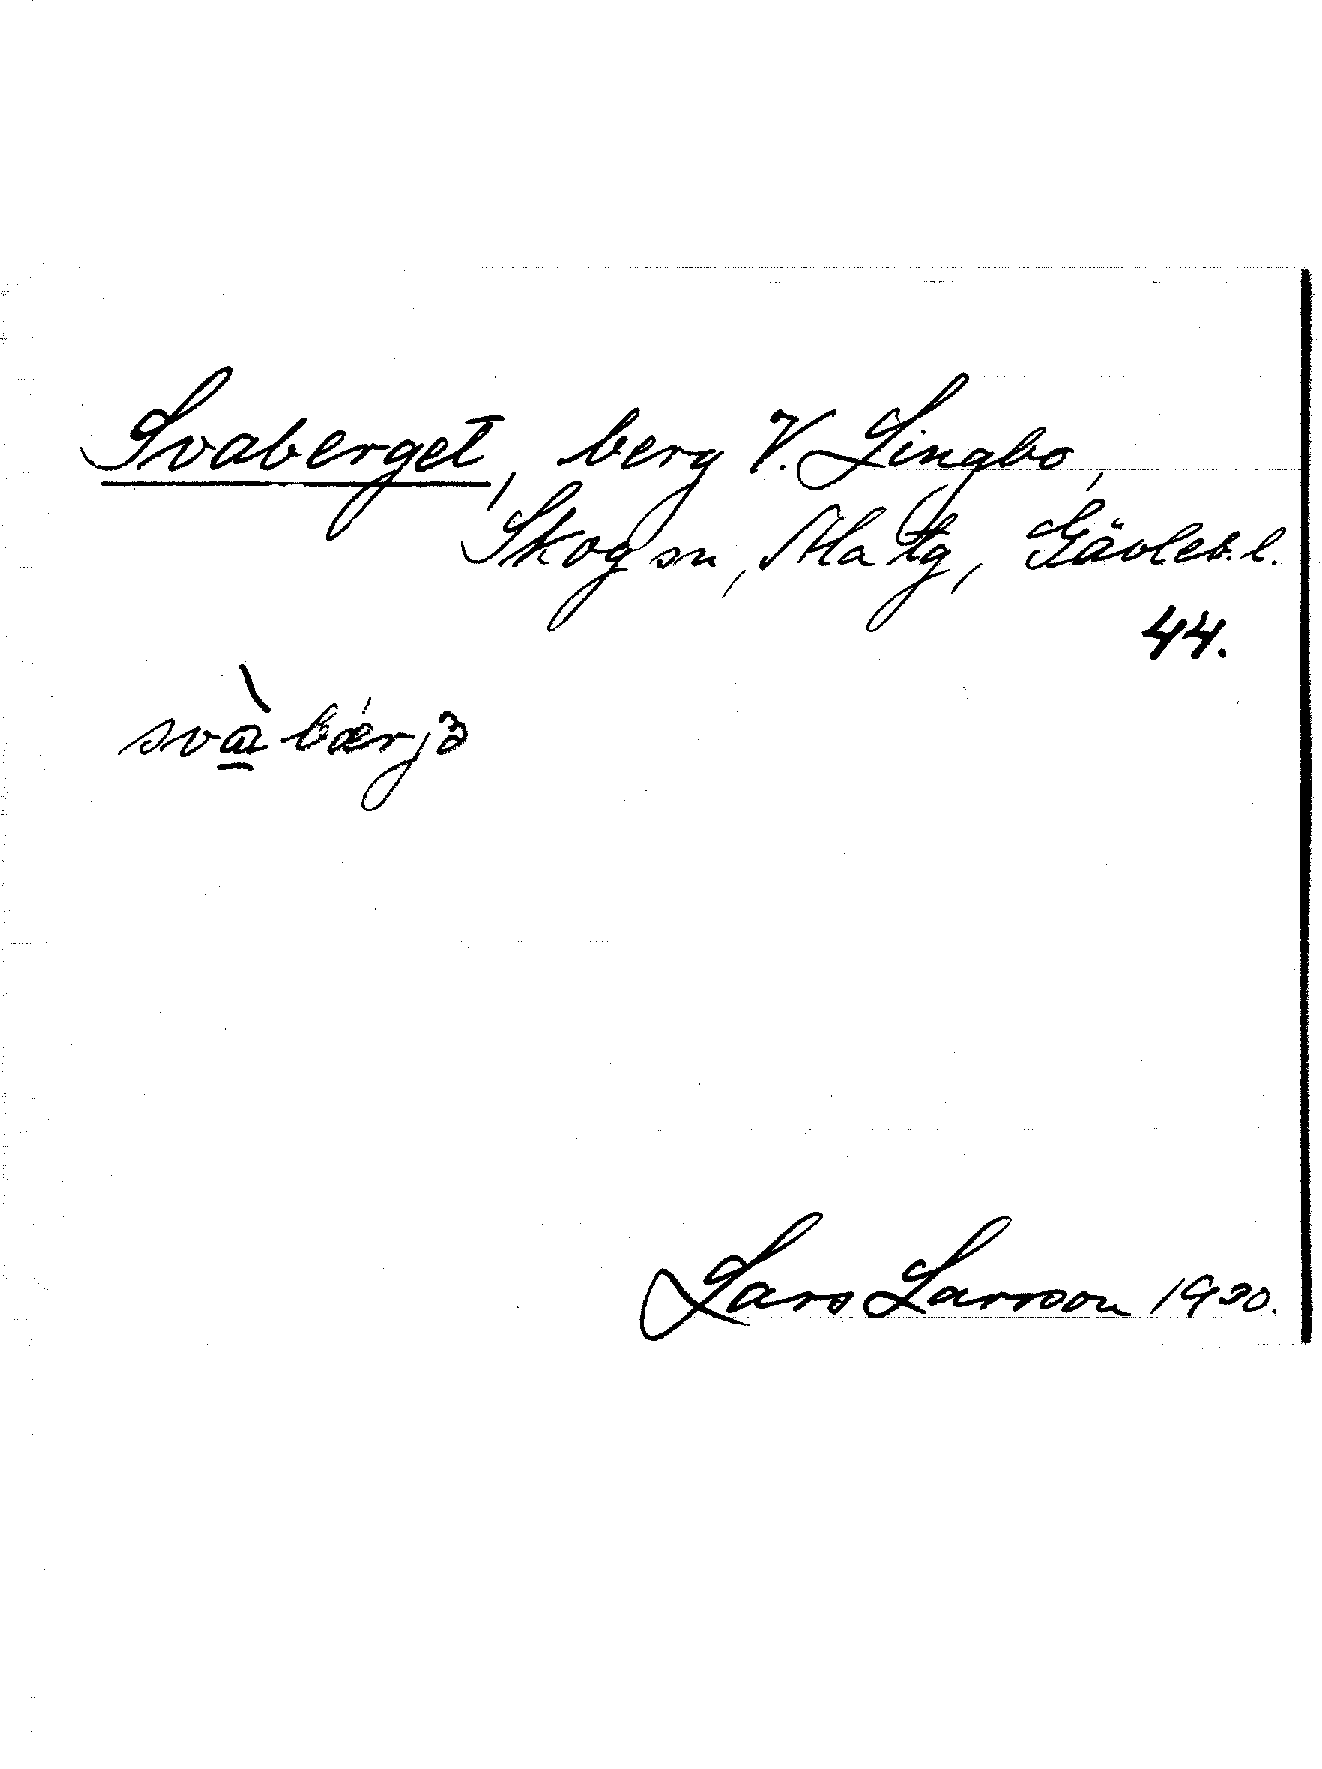 Svaberget, berg V. Lingbo,
Skog sn, Ala tg, Gävleb.l.
44.
svàbǽrjə
Lars Larsson 1920.